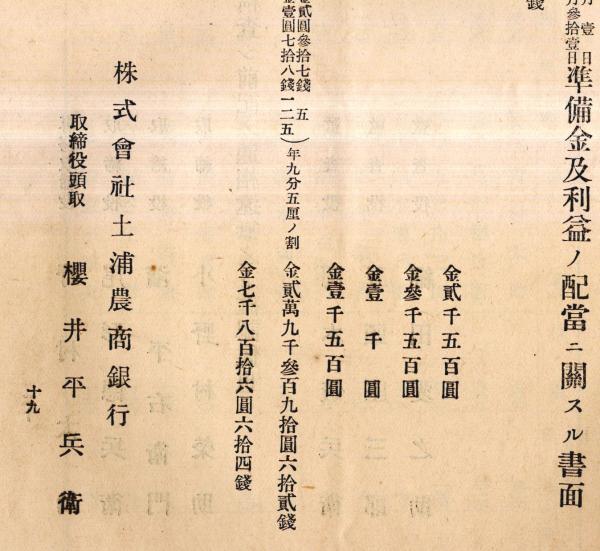 月壹日
月參拾壹日
準備金及利益ノ配當ニ關スル書面
錢
金貳千五百圓
金參千五百圓
金壹千圓
金壹千五百圓
金貳圓參拾七錢五
金壹圓七拾八錢一二五
年九分五厘ノ割
金貳萬九千參百九拾圓六拾貳錢
金七千八百拾六圓六拾四錢
株式會社土浦農商銀行
取締役頭取 櫻井平兵衛
十九